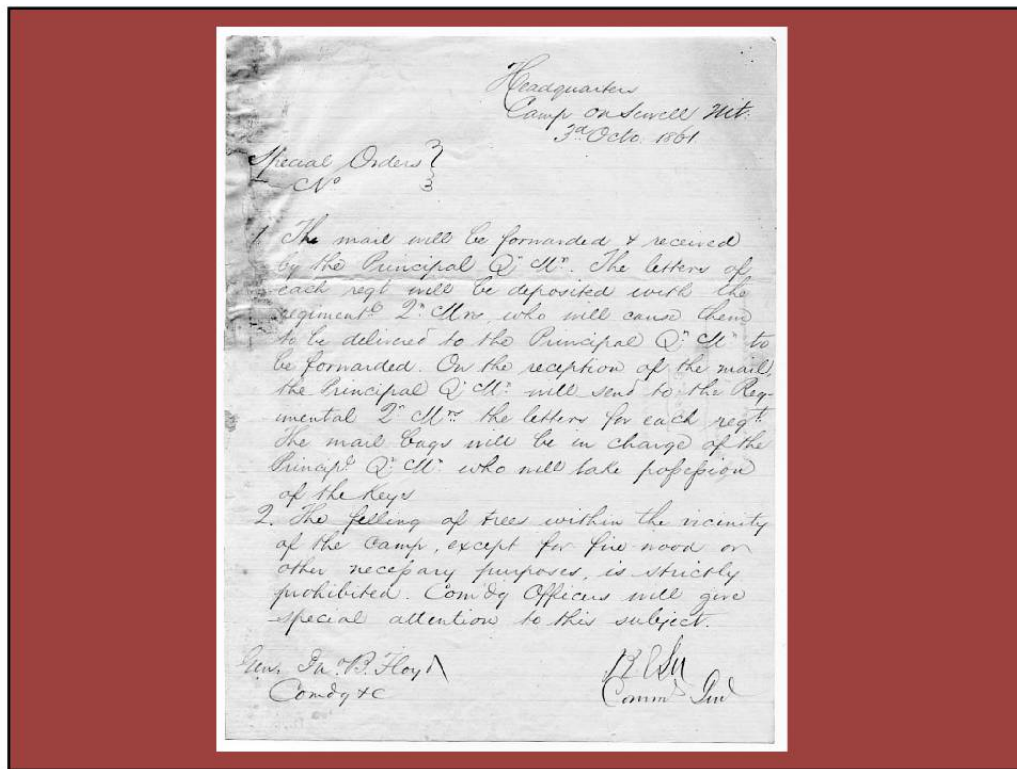 Headquarters
Camp on Sewell Mt.
3d Octo. 1861
Special Orders }
No }
1. The mail will be forwarded & received
by the Principal Qr Mr. The letters of
each regt will be deposited with the
regimentl Qr Mrs, who will cause them
to be delivered to the Principal Qr Mr to
be forwarded. On the reception of the mail,
the Principal Qr Mr will send to the Reg-
imental Qr Mrs the letters for each regt.
The mail bags will be in charge of the
Principl Qr Mr who will take possession
of the Keys
2. The felling of trees within the vicinity
of the camp, except for fire wood or
other necessary purposes, is strictly
prohibited. Comdg Officers will give
special attention to this subject.
Genl B. Floyd
Comdg &c
R E Lee
Comm Genl